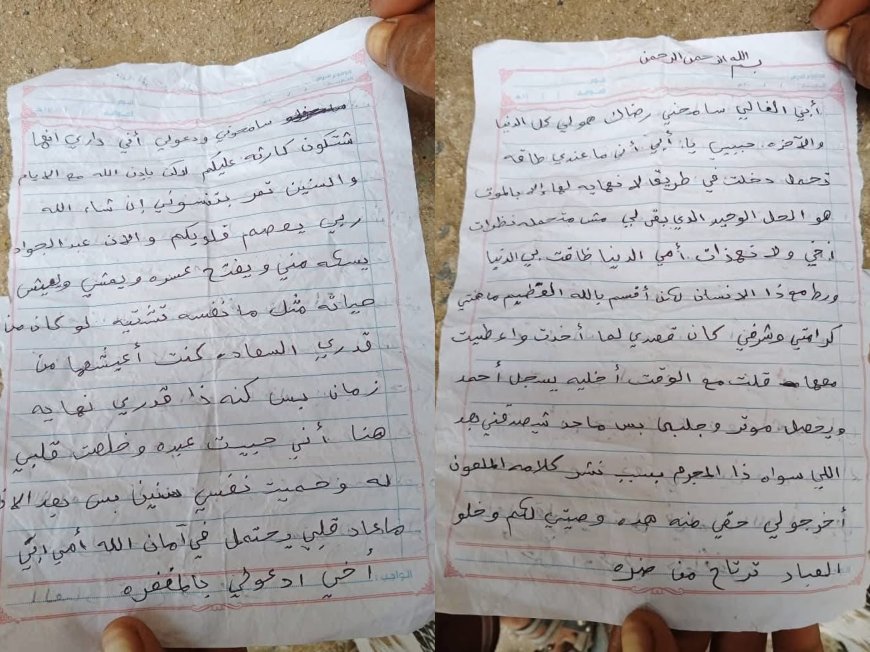 بسم الله الرحمن الرحمن
أبي الغالي سامحني رضاك هولي كل الدنيا
والآخره حبيبي يا أبي أني ما عندي طاقه
تحمل دخلت في طريق لا نهايه لها إلا بالموت
هو الحل الوحيد الذي بقى لي مش متحمله نظرات
أخي ولا نهذات أمي الدنيا ظاقت بي الدنيا
ورط مع ذا الانسان لكن أقسم بالله العظيم ما همني
كرامتي وشرفي كان قصدي لما أخدت واعطيت
معها قلت مع الوقت أخليه يسجل أحمد
ويحصل موتر وجلبها بس ماحد شيصدقني بعد
اللي سواه ذا المجرم بسبب نشر كلامه الملعون
أخرجولي حقي منه هده وصيتي لكم وخلو
العباد ترتاح من ضره
سامحوني ودعولي أني داري انها
شتكون كارثه عليكم لاكن بإدن الله مع الايام
والسنين تمر بتنسوني إن شاء الله
ربي يعصم قلوبكم والان عبد الجواد
يسكه مني ويفتح عسره ويمشي ويعيش
حياته مثل ما نفسه تشتيه لو كان من
قدري السعاده كنت أعيشها من
زمان بس كنه ذا قدري نهايه
هنا أني حبيت عبده وخلصت قلبي
له وحميت نفسي سنين بس بعد الان
ماعاد قلبي يحتمل في آمان الله أمي أبي
أخي ادعولي بالمغفره
الواجب